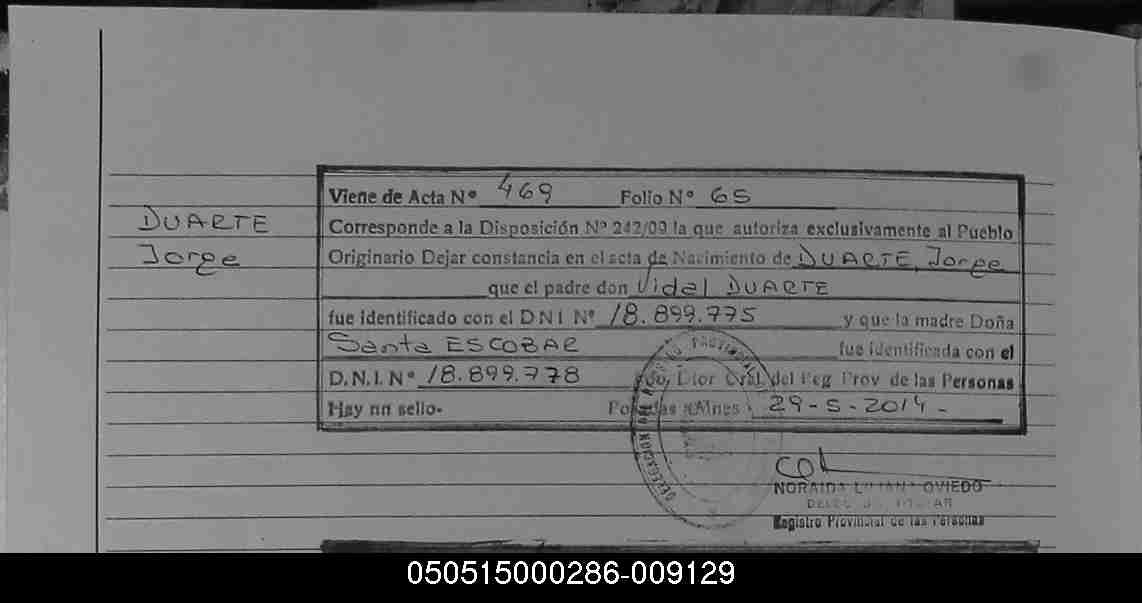 DUARTE
Jorge
Viene de Acta Nº 469 Folio Nº 65
Corresponde a la Disposición Nº 242/09 la que autoriza exclusivamente al Pueblo
Originario Dejar constancia en el acta de Nacimiento de DUARTE, Jorge
que el padre don Vidal DUARTE
fue identificado con el D N I Nº 18.899.775 y que la madre Doña
Santa ESCOBAR fue identificada con el
D.N.I. Nº 18.899.778 Fdo, Dtor Gral. del Reg Prov de las Personas
Hay un sello- Posadas Mnes 29-5-2014-
DELEGACION DEL REGISTRO PROVINCIAL
NORAIDA LILIANA OVIEDO
Registro Provincial de las Personas
050515000286-009129